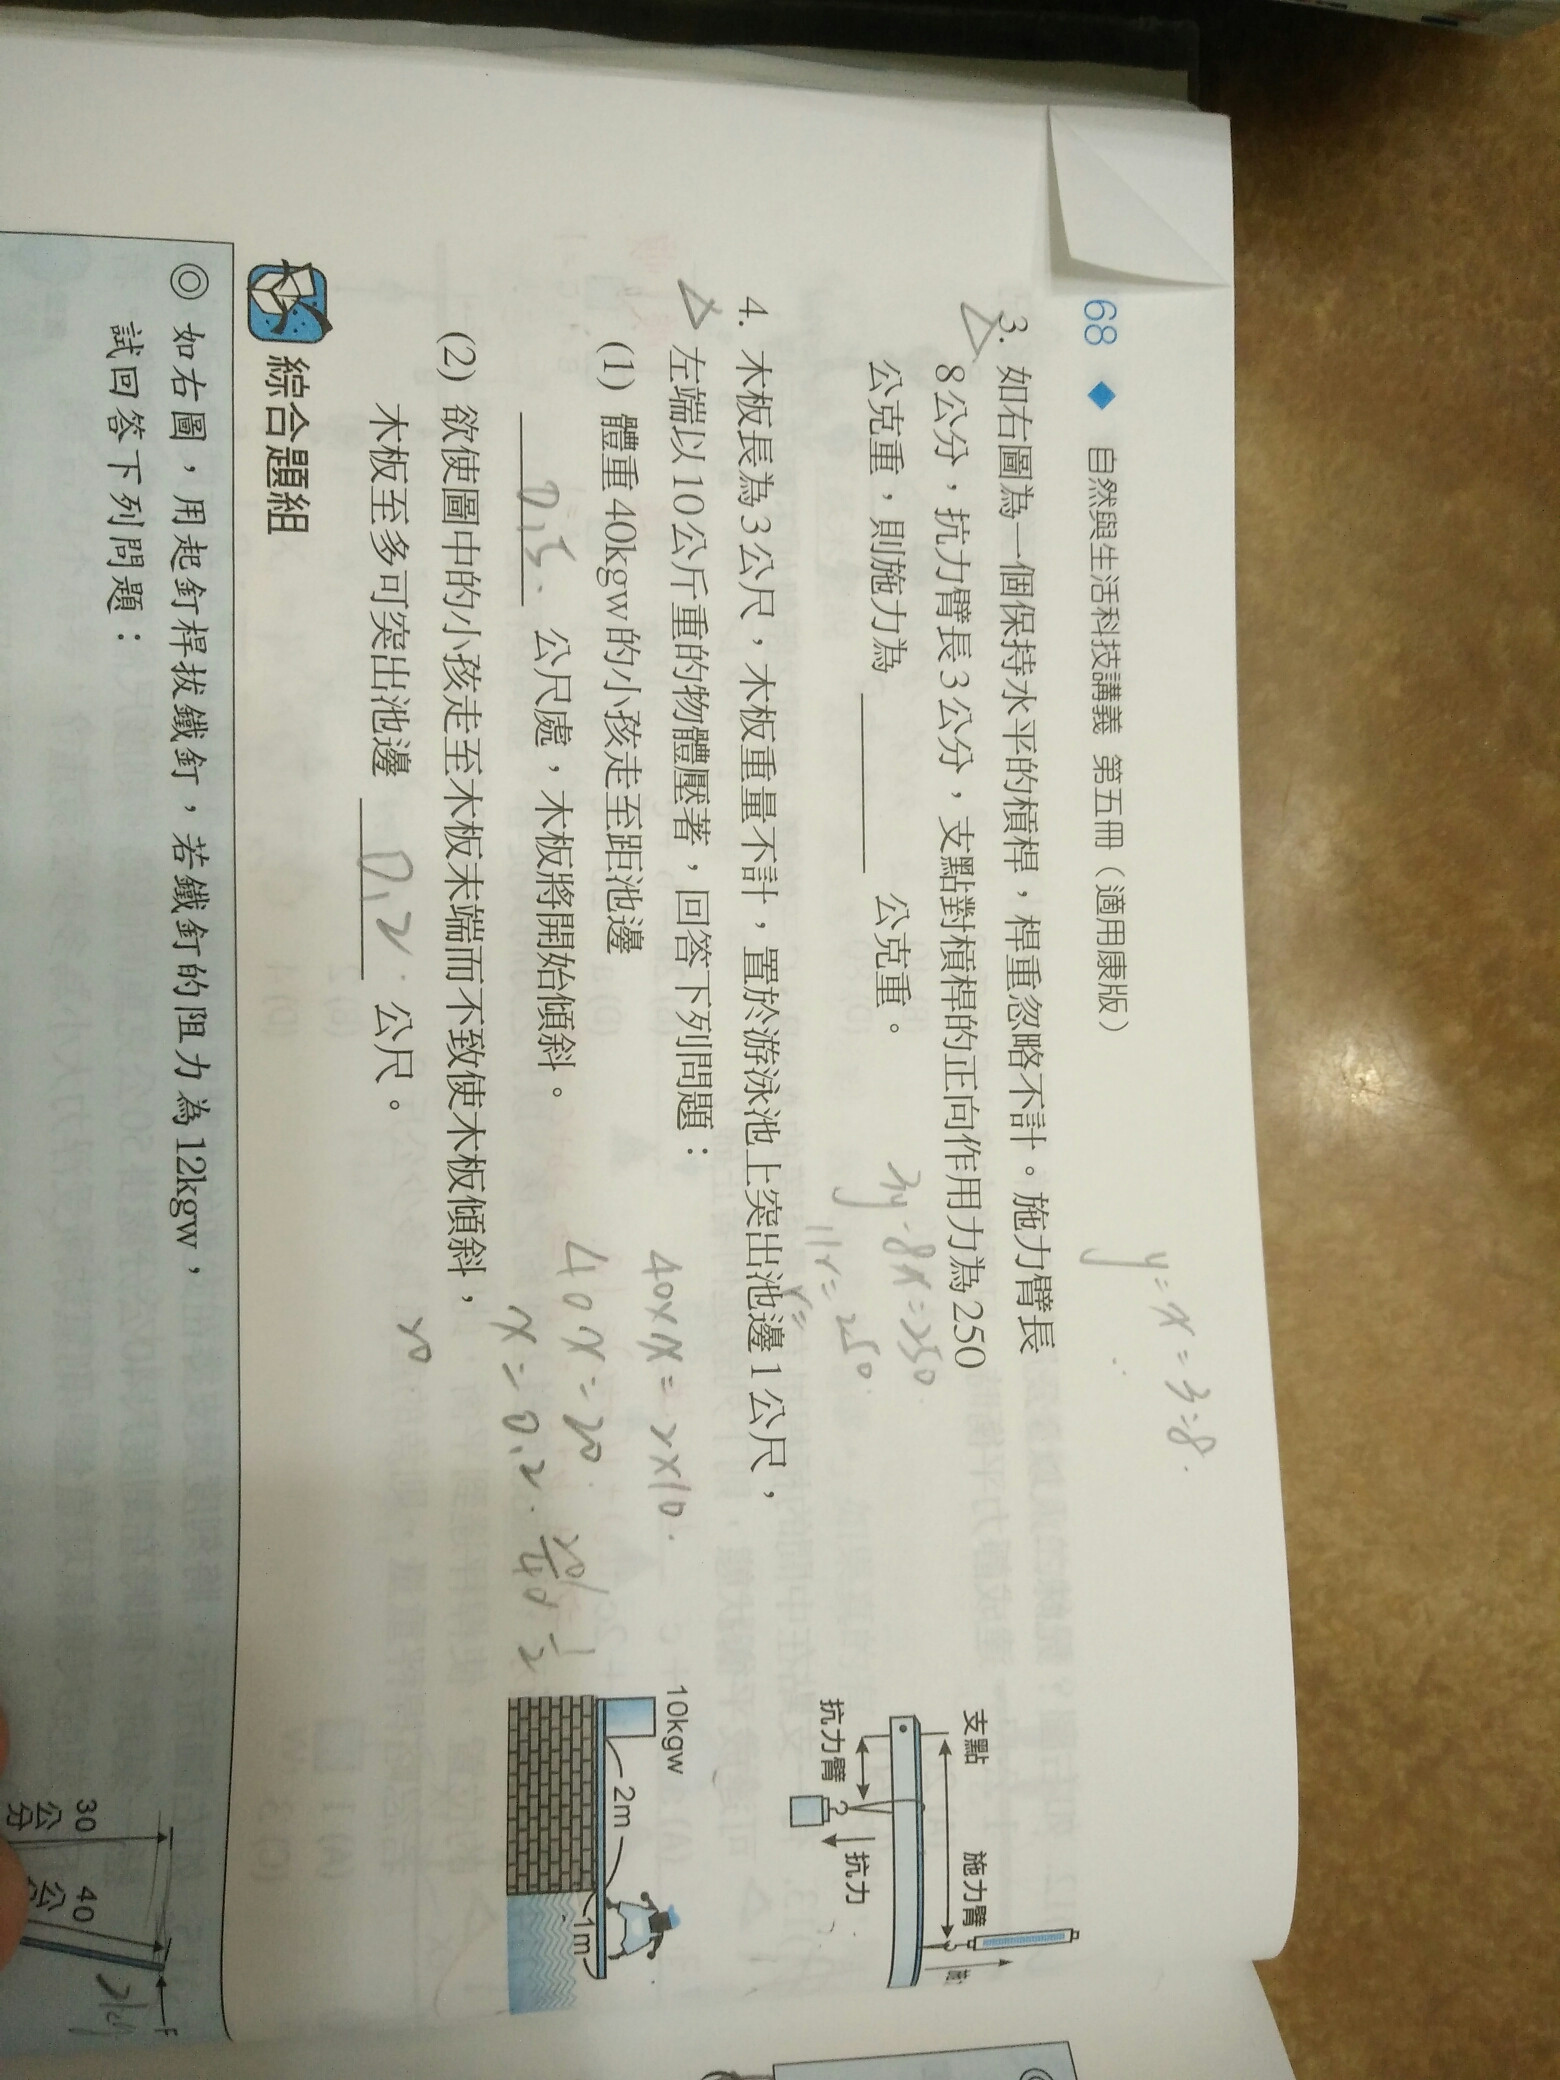 68 ◆ 自然與生活科技講義 第五冊（適用康版）
y=x=3:8.
3. 如右圖為一個保持水平的槓桿，桿重忽略不計。施力臂長
8公分，抗力臂長3公分，支點對槓桿的正向作用力為250
公克重，則施力為 ＿＿＿ 公克重。
3y-8x=250
11x=250.
支點
施力臂
抗力臂
抗力
4. 木板長為3公尺，木板重量不計，置於游泳池上突出池邊1公尺，
左端以10公斤重的物體壓著，回答下列問題：
(1) 體重40kgw的小孩走至距池邊
0.5. 公尺處，木板將開始傾斜。
(2) 欲使圖中的小孩走至木板末端而不致使木板傾斜，
木板至多可突出池邊 0.2. 公尺。
40×x=2×10.
40x=20
x=0.2.
20/40 1/2
10kgw
2m
1m
綜合題組
◎ 如右圖，用起釘桿拔鐵釘，若鐵釘的阻力為12kgw，
試回答下列問題：
30
公分
40
公
F